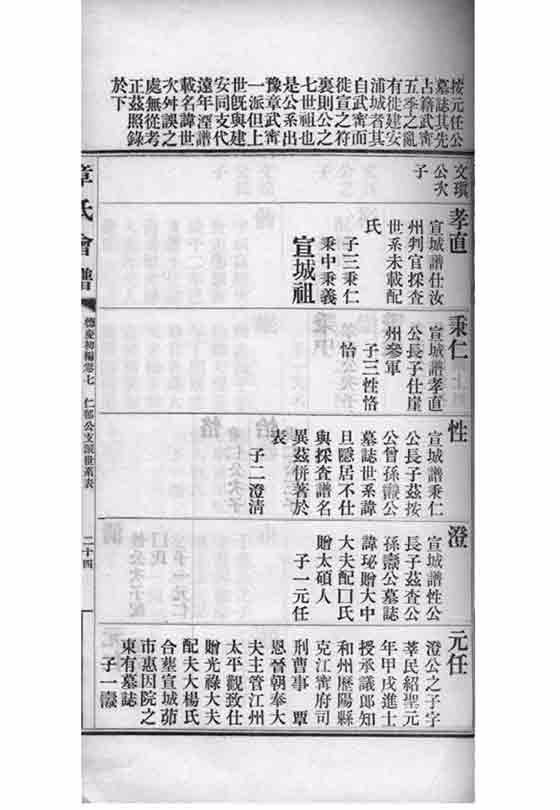 按元任公
墓誌其先
占籍武寧
五季之亂
有徙建安
浦城者其
自武寧而
徙宣之符
裏則公之
七世祖也
是公系出
豫章武寧
一派但上
世既與建
安同支代
遠年湮譜
載名諱世
次舛誤之
處無從考
正茲照錄
於下
文瑱
公次
子
孝直
宣城譜仕汝
州判官採查
世系未載配
氏
子三秉仁
秉中秉義
宣城祖
秉仁
宣城譜孝直
公長子仕崖
州參軍
子三性恪
怡
性
宣城譜秉仁
公長子茲按
公曾孫公
墓誌世系諱
且隱居不仕
與採查譜名
異茲併著於
表
子二澄清
澄
宣城譜性公
長子茲查公
孫公墓誌
諱珌贈大中
大夫配囗氏
贈太碩人
子一元任
元任
澄公之子字
莘民紹聖元
年甲戌進士
授承議郎知
和州歷陽縣
克江寧府司
刑曹事 覃
恩晉朝奉大
夫主管江州
太平觀致仕
贈光祿大夫
配夫人楊氏
合塟宣城茆
市惠因院之
東有墓誌
子一
章氏會譜
德慶初編卷七 仁郁公支派世系表
二十四